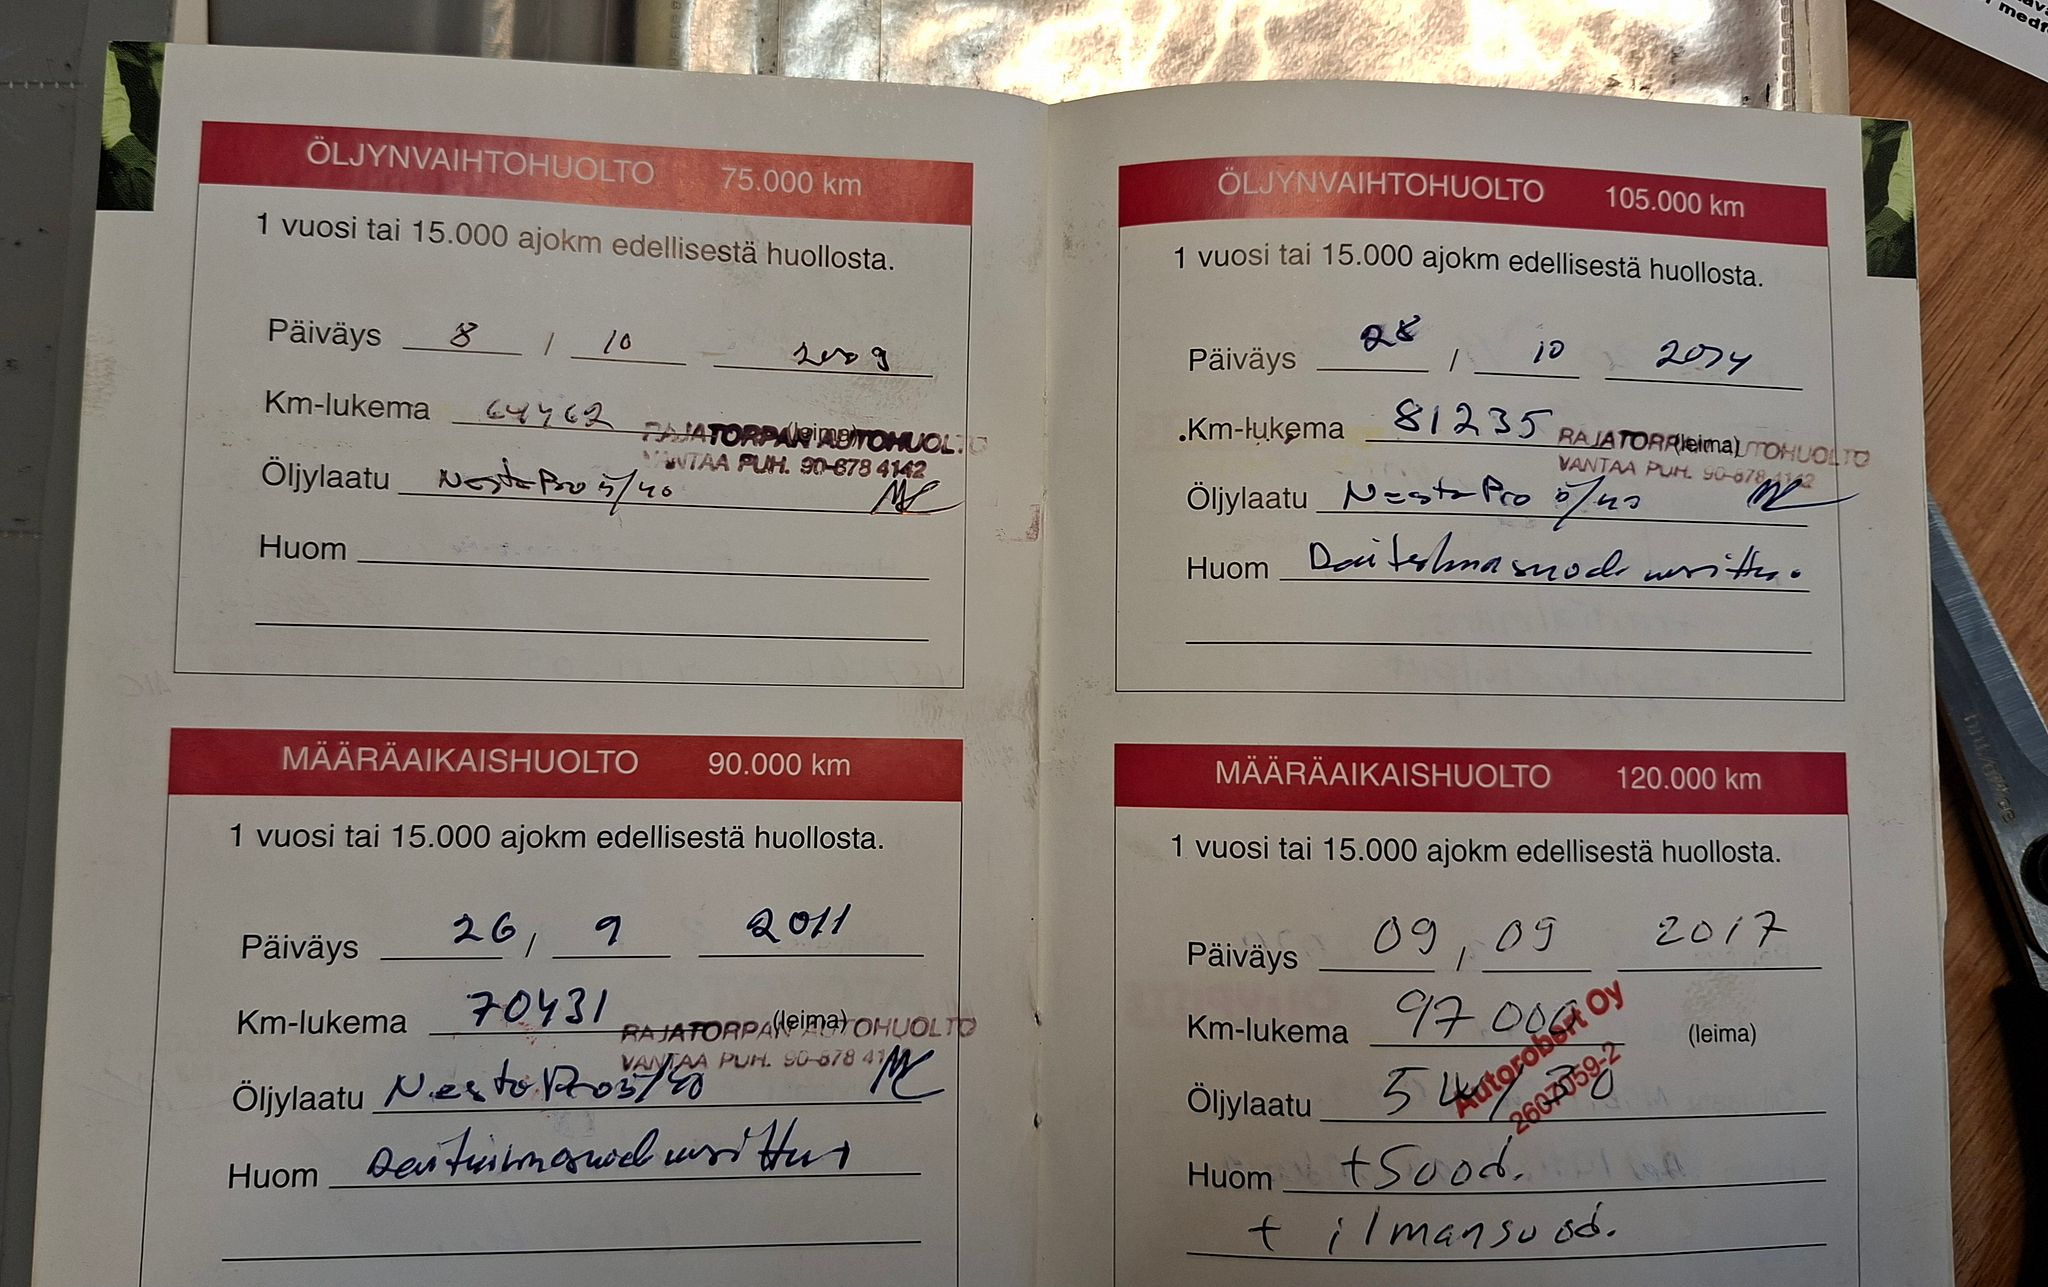 ÖLJYNVAIHTOHUOLTO 75.000 km
1 vuosi tai 15.000 ajokm edellisestä huollosta.
Päiväys 8 / 10 2009
Km-lukema 64462 (leima)
RAJATORPAN AUTOHUOLTO
VANTAA PUH. 90-878 4142
Öljylaatu Neste Pro 5/40
Huom
MÄÄRÄAIKAISHUOLTO 90.000 km
1 vuosi tai 15.000 ajokm edellisestä huollosta.
Päiväys 26 / 9 2011
Km-lukema 70431 (leima)
RAJATORPAN AUTOHUOLTO
VANTAA PUH. 90-878 41
Öljylaatu Neste Pro 5/40
Huom Raitisilmasuod uusittu
ÖLJYNVAIHTOHUOLTO 105.000 km
1 vuosi tai 15.000 ajokm edellisestä huollosta.
Päiväys 28 / 10 2014
Km-lukema 81235 (leima)
RAJATORPAN AUTOHUOLTO
VANTAA PUH. 90-878 4142
Öljylaatu Neste Pro 5/40
Huom Raitisilmasuod uusittu.
MÄÄRÄAIKAISHUOLTO 120.000 km
1 vuosi tai 15.000 ajokm edellisestä huollosta.
Päiväys 09 / 09 2017
Km-lukema 97000 (leima)
Autorobert Oy
2607059-2
Öljylaatu 5W/30
Huom +Suod.
+ ilmansuod.